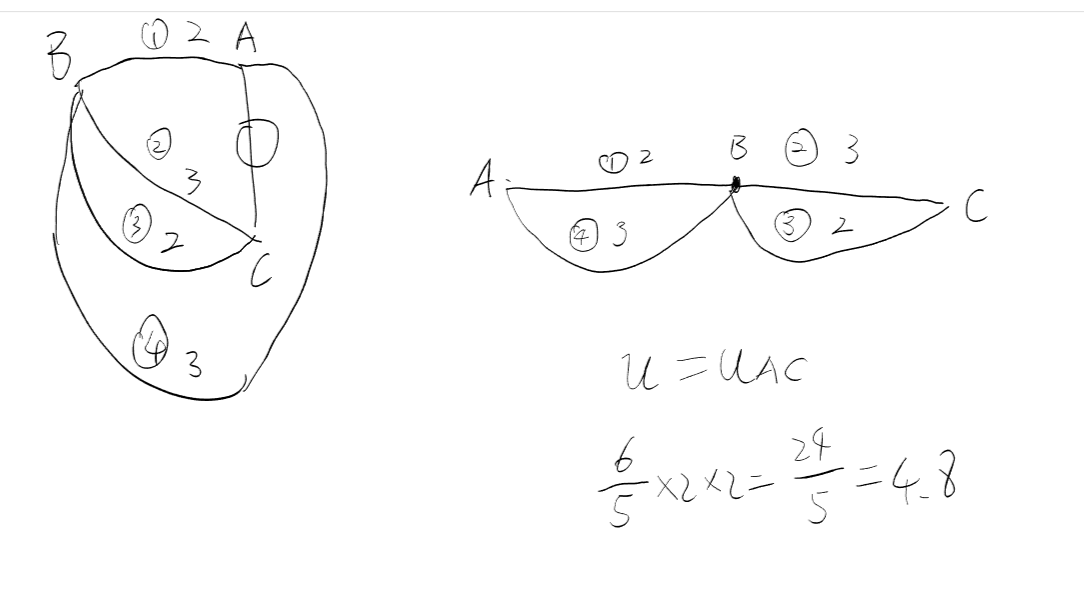 ① 2 A
B
② 3
③ 2
C
④ 3
A ① 2 B ② 3 C
④ 3 ③ 2
u = uAC
6/5 ×2×2= 24/5 =4.8